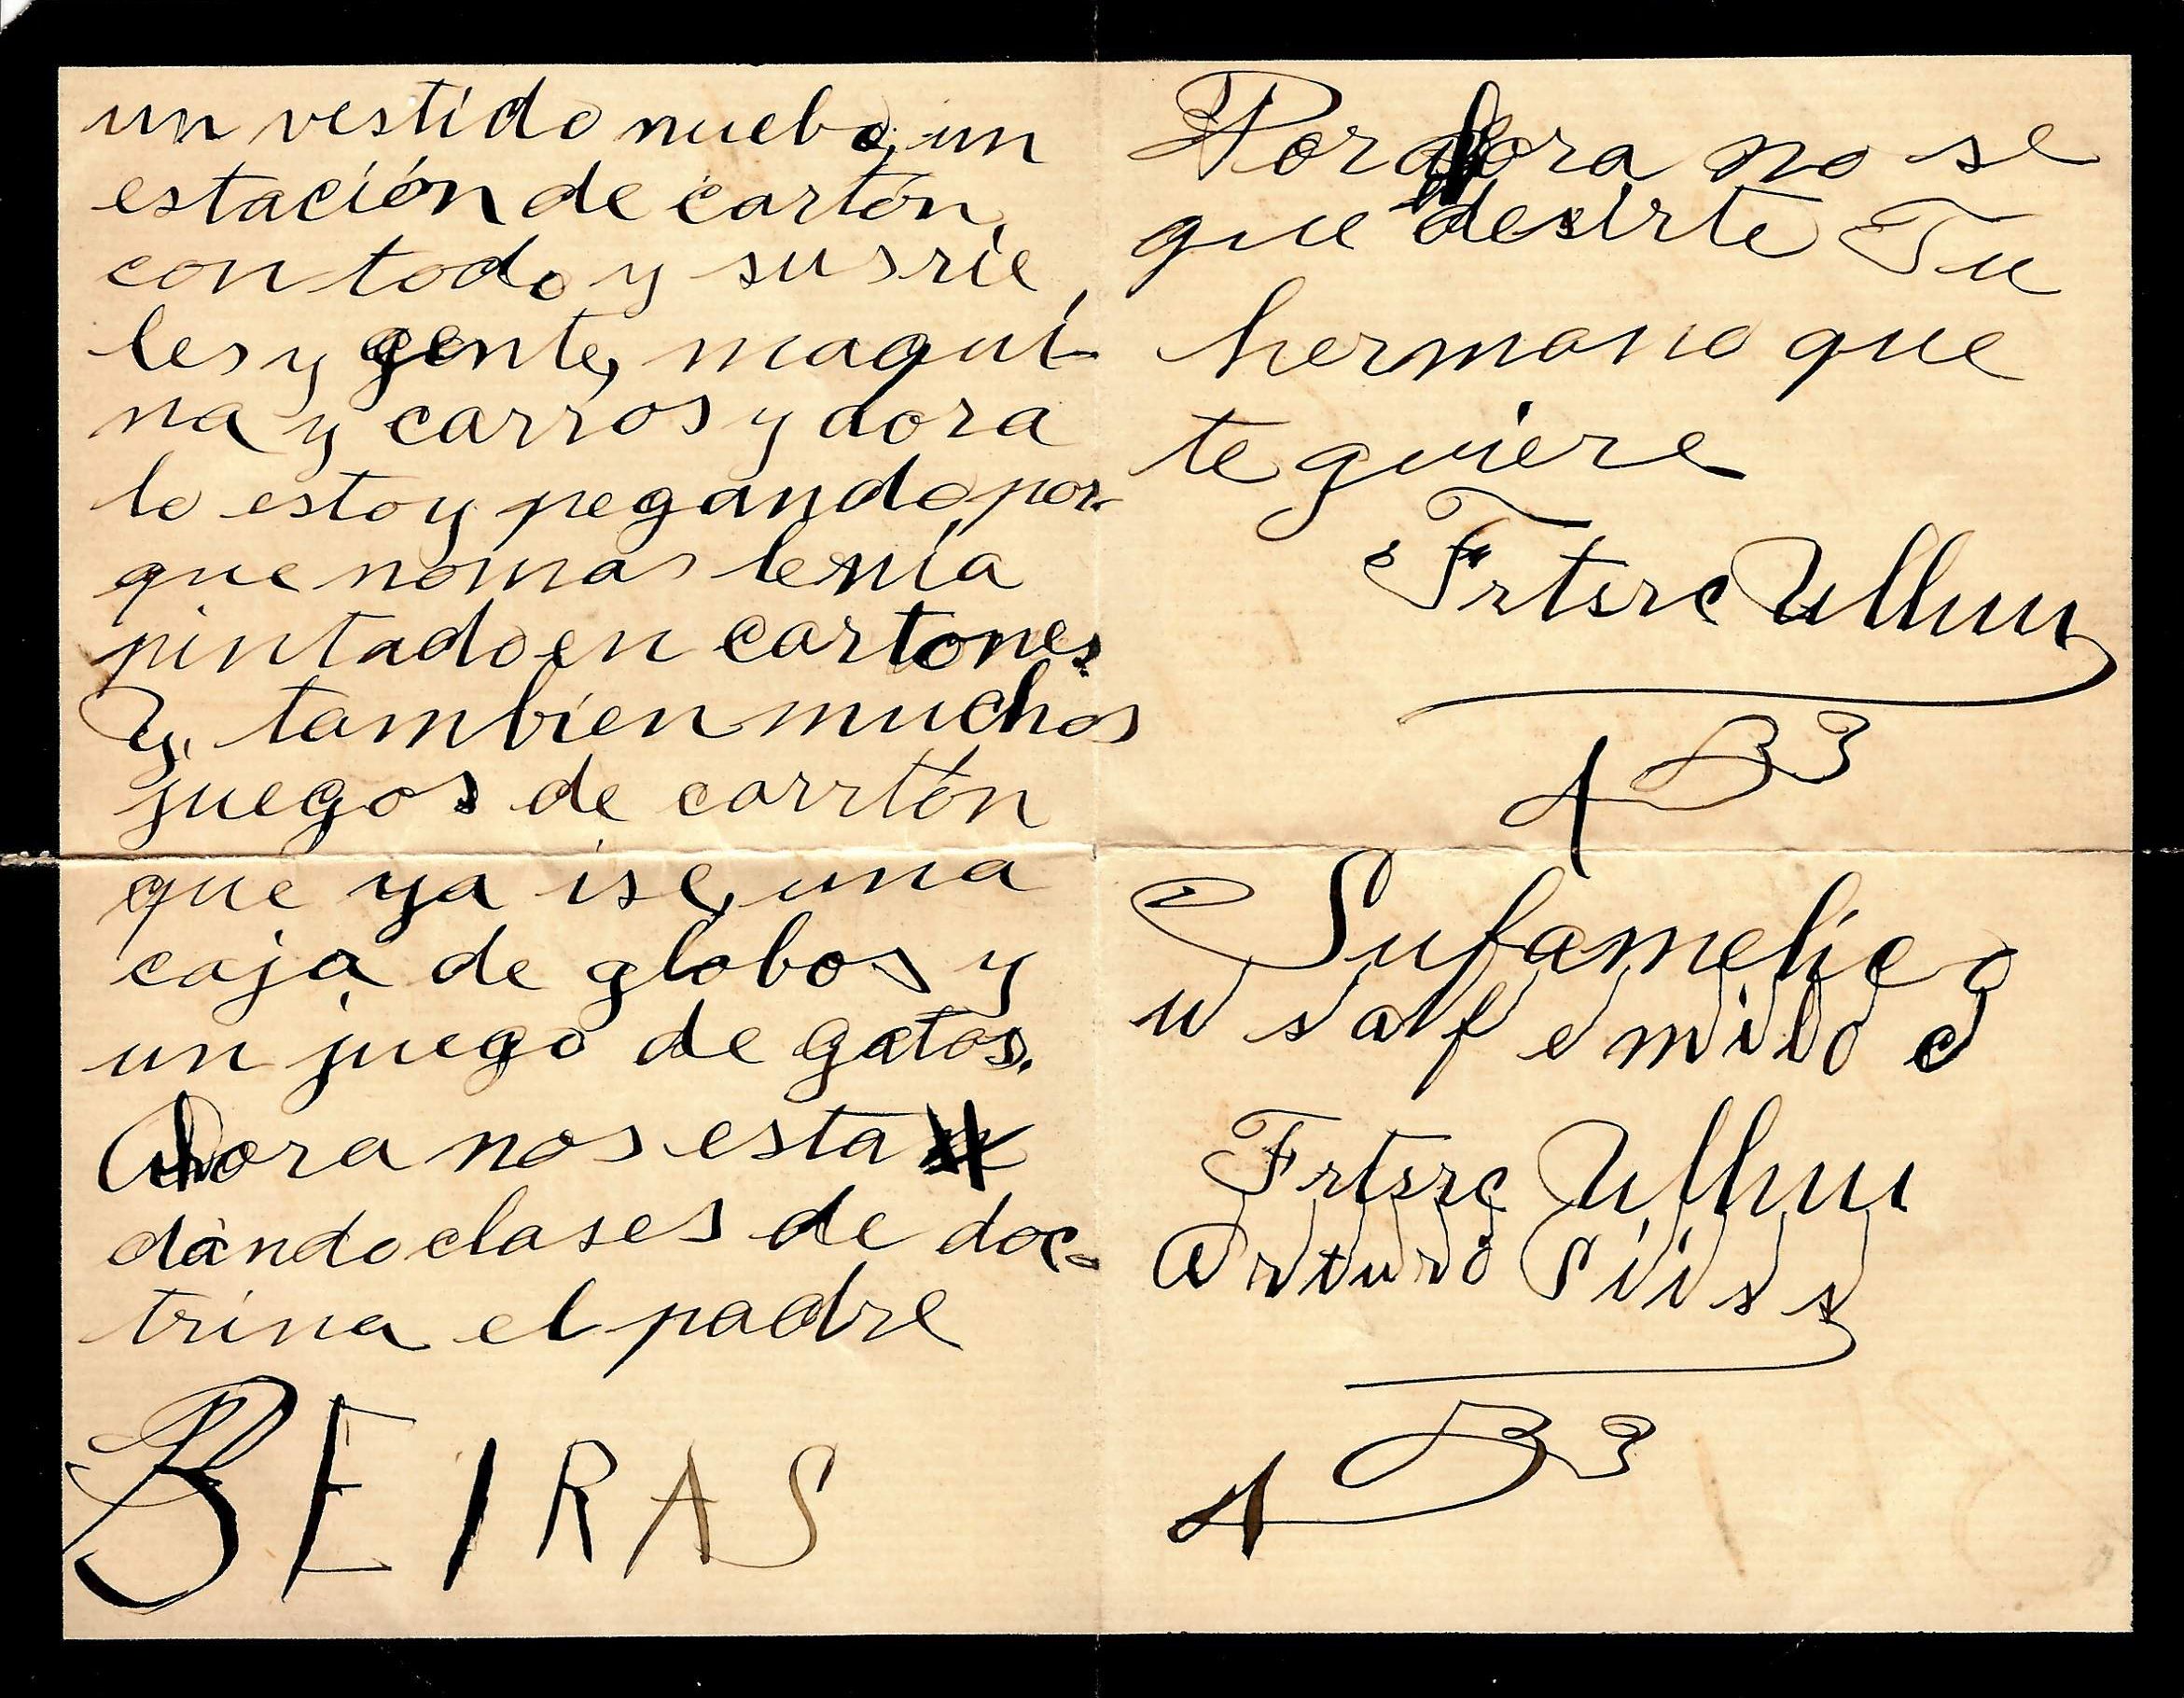 un vestido nuebo, un
estación de cartón,
con todo y sus rie,
les y gente, maqui-
na y carros y aora
lo estoy pegando por-
que nomas tenía
pintado en cartones
Y, tambien muchos
juegos de carrtón
que ya ise, una
caja de globos y
un juego de gatos.
Ahora nos esta
dándo clases de doc-
trina el padre
BEIRAS
Por ahora no se
que desirte Tu
hermano que
te quiere
Frtsrc Ullhuu
A B 3
Sufamelico
u s a f e m i l o c
Frtsrc Ullhuu
Arturo Siiss
A B 3